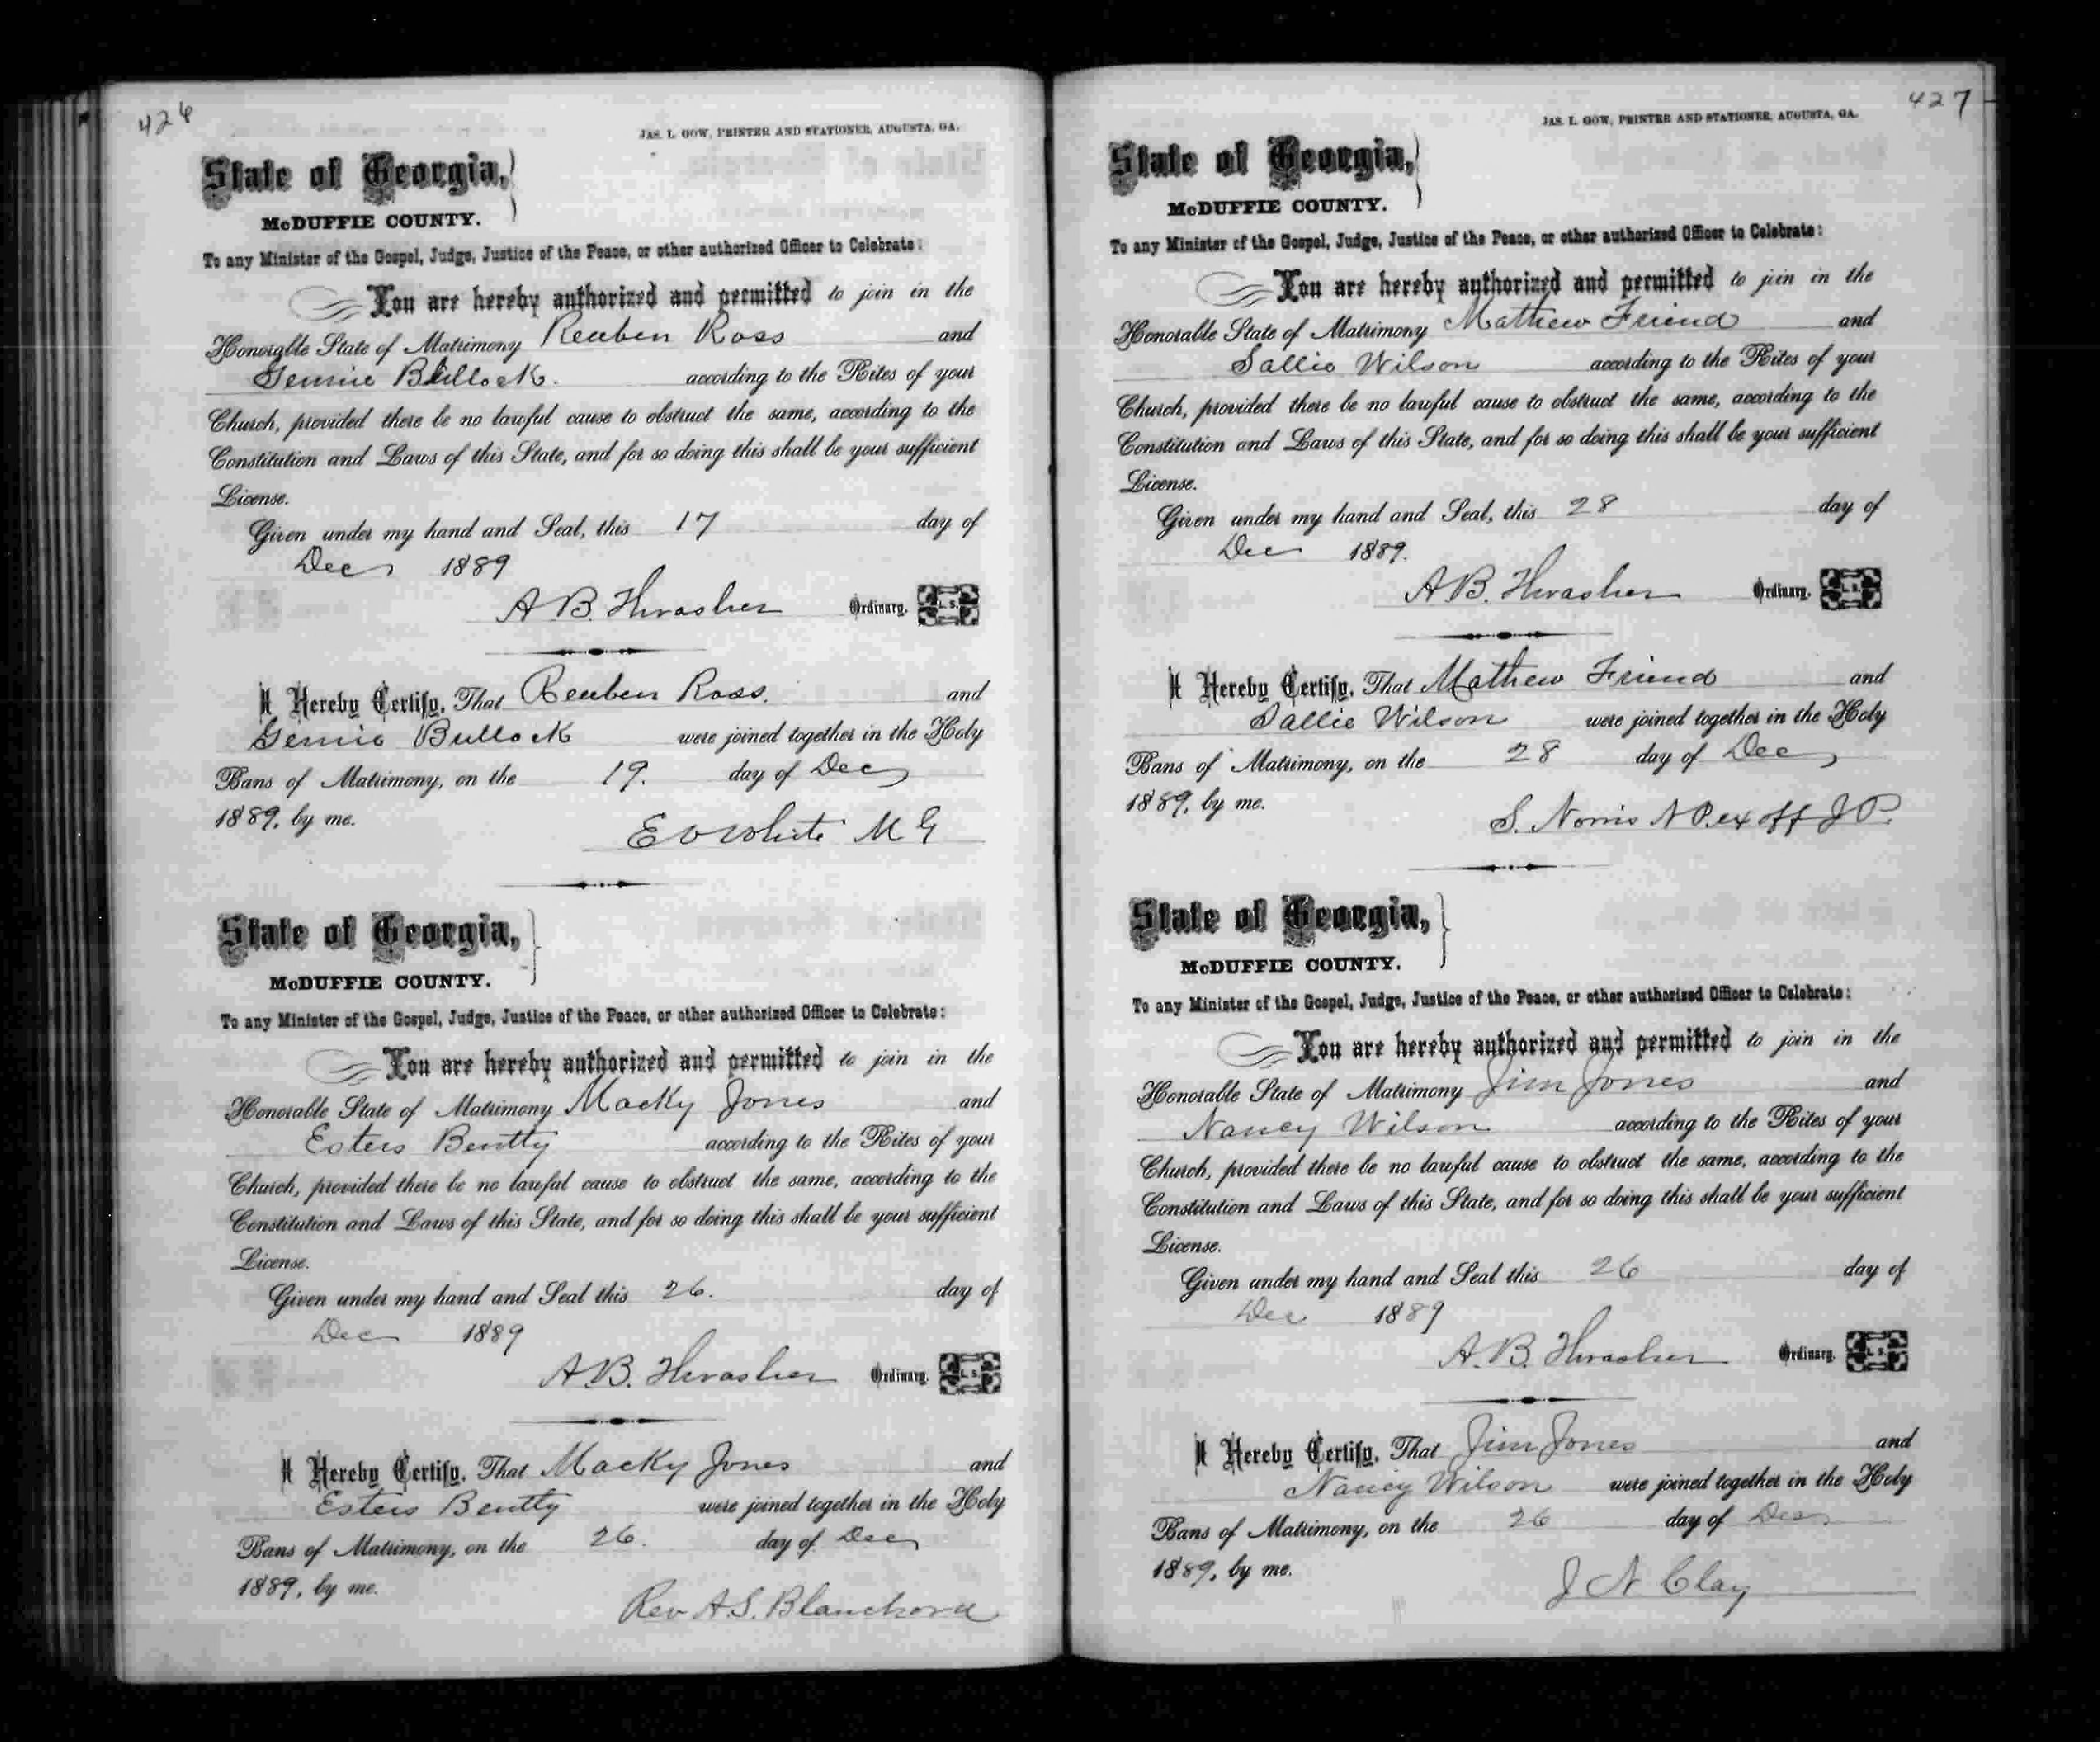 426
JAS. L. GOW, PRINTER AND STATIONER, AUGUSTA, GA.
State of Georgia,
McDUFFIE COUNTY.
To any Minister of the Gospel, Judge, Justice of the Peace, or other authorized Officer to Celebrate:
You are hereby authorized and permitted to join in the
Honorable State of Matrimony Reuben Ross and
Gennie Bullock. according to the Rites of your
Church, provided there be no lawful cause to obstruct the same, according to the
Constitution and Laws of this State, and for so doing this shall be your sufficient
License.
Given under my hand and Seal, this 17 day of
Dec 1889
A B. Thrasher Ordinary. L. S.
I Hereby Certify, That Reuben Ross. and
Gennie Bullock were joined together in the Holy
Bans of Matrimony, on the 19. day of Dec
1889, by me.
E O White M G
State of Georgia,
McDUFFIE COUNTY.
To any Minister of the Gospel, Judge, Justice of the Peace, or other authorized Officer to Celebrate:
You are hereby authorized and permitted to join in the
Honorable State of Matrimony Macky Jones and
Esters Bentty according to the Rites of your
Church, provided there be no lawful cause to obstruct the same, according to the
Constitution and Laws of this State, and for so doing this shall be your sufficient
License.
Given under my hand and Seal this 26. day of
Dec 1889
A B. Thrasher Ordinary. L. S.
I Hereby Certify, That Macky Jones and
Esters Bentty were joined together in the Holy
Bans of Matrimony, on the 26. day of Dec
1889, by me.
Rev A. S. Blanchard
427
JAS. L. GOW, PRINTER AND STATIONER, AUGUSTA, GA.
State of Georgia,
McDUFFIE COUNTY.
To any Minister of the Gospel, Judge, Justice of the Peace, or other authorized Officer to Celebrate:
You are hereby authorized and permitted to join in the
Honorable State of Matrimony Mathew Friend and
Sallie Wilson according to the Rites of your
Church, provided there be no lawful cause to obstruct the same, according to the
Constitution and Laws of this State, and for so doing this shall be your sufficient
License.
Given under my hand and Seal, this 28 day of
Dec 1889.
A B. Thrasher Ordinary. L. S.
I Hereby Certify, That Mathew Friend and
Sallie Wilson were joined together in the Holy
Bans of Matrimony, on the 28 day of Dec
1889, by me.
S. Norris N P. ex off J P.
State of Georgia,
McDUFFIE COUNTY.
To any Minister of the Gospel, Judge, Justice of the Peace, or other authorized Officer to Celebrate:
You are hereby authorized and permitted to join in the
Honorable State of Matrimony Jim Jones and
Nancy Wilson according to the Rites of your
Church, provided there be no lawful cause to obstruct the same, according to the
Constitution and Laws of this State, and for so doing this shall be your sufficient
License.
Given under my hand and Seal this 26 day of
Dec 1889
A. B. Thrasher Ordinary. L. S.
I Hereby Certify, That Jim Jones and
Nancy Wilson were joined together in the Holy
Bans of Matrimony, on the 26 day of Dec
1889, by me.
J N Clay